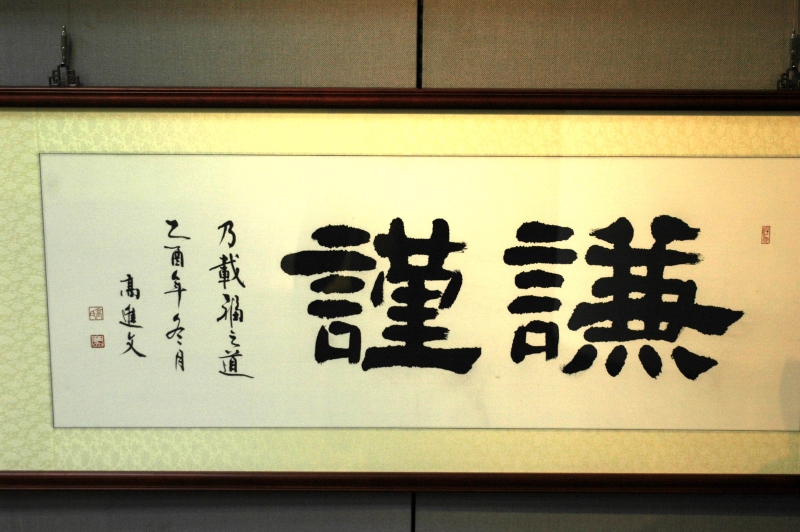 謙謹
乃載福之道
乙酉年冬月
高進文